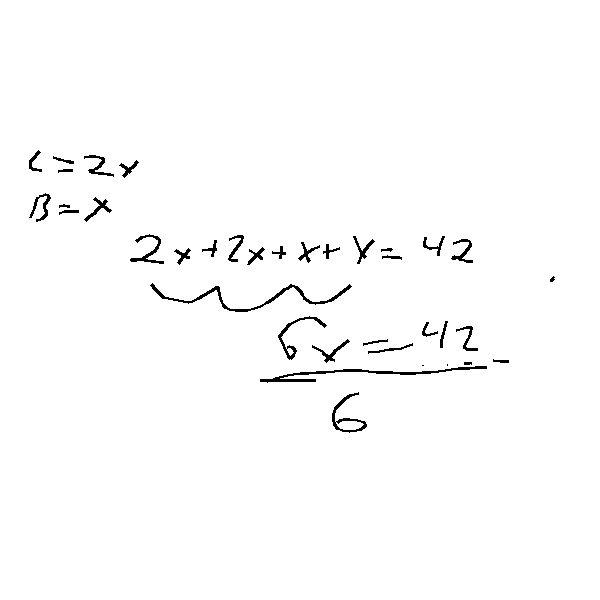 L=2x
B=x
2x+2x+x+x=42
6x=42
6